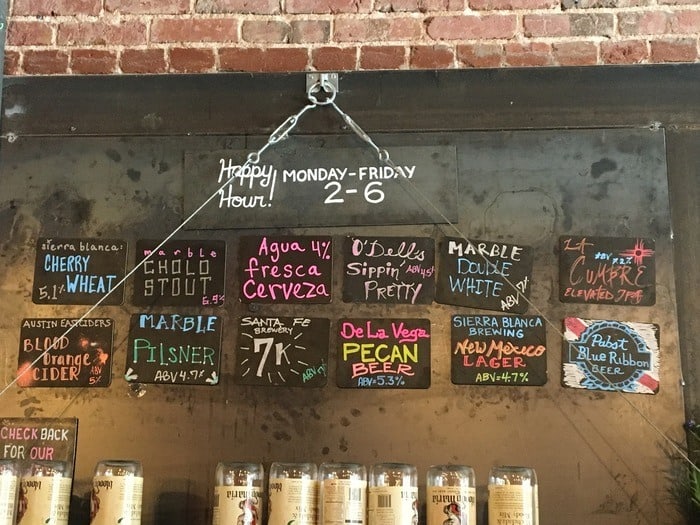 Happy Hour!
MONDAY-FRIDAY
2-6
sierra blanca:
CHERRY
WHEAT
5.1%
marble
CHOLO
STOUT
Agua 4%
fresca
Cerveza
O'Dells
Sippin'
ABV 4.5%
PRETTY
MARBLE
DOUBLE
WHITE
ABV 7%
LA
CUMBRE
ELEVATED IPA
AUSTIN EASTCIDERS
BLOOD
Orange
CIDER
ABV
5%
MARBLE
PILSNER
ABV 4.7%
SANTA FE
BREWERY
7K
De La Vega
PECAN
BEER
ABV=5.3%
SIERRA BLANCA
BREWING
NEW MEXICO
LAGER
ABV=4.7%
Pabst
Blue Ribbon
BEER
CHECK BACK
FOR OUR